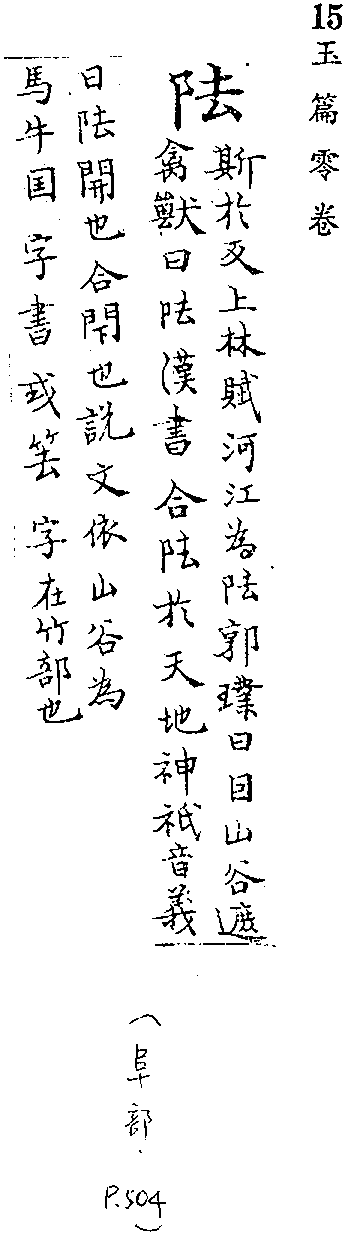 15玉篇零卷
阹
斯於反上林賦河江為阹郭璞曰囙山谷遮
禽獸曰阹漢書合阹於天地神祇音義
曰阹開也合閇也説文依山谷為
馬牛囯字書或字在竹部也
(阜部.P.504)